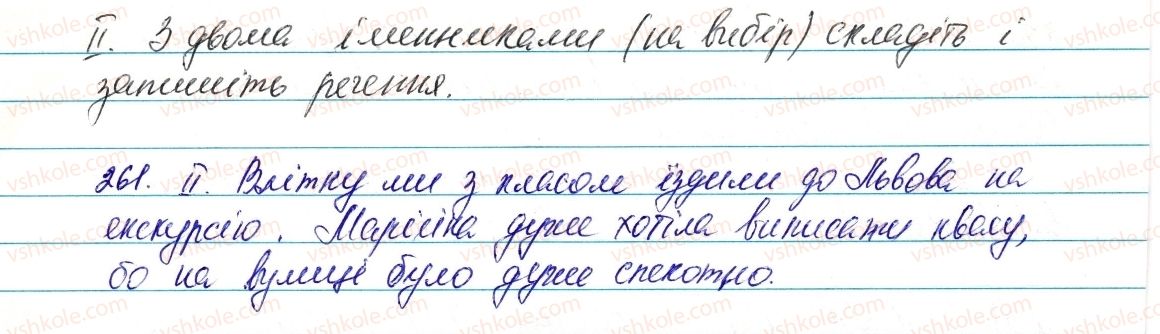 II. З двома іменниками (на вибір) складіть і
запишіть речення.
261. II. Влітку ми з класом їздили до Львова на
екскурсію. Марійка дуже хотіла
квасу,
бо на вулиці було дуже спекотно.